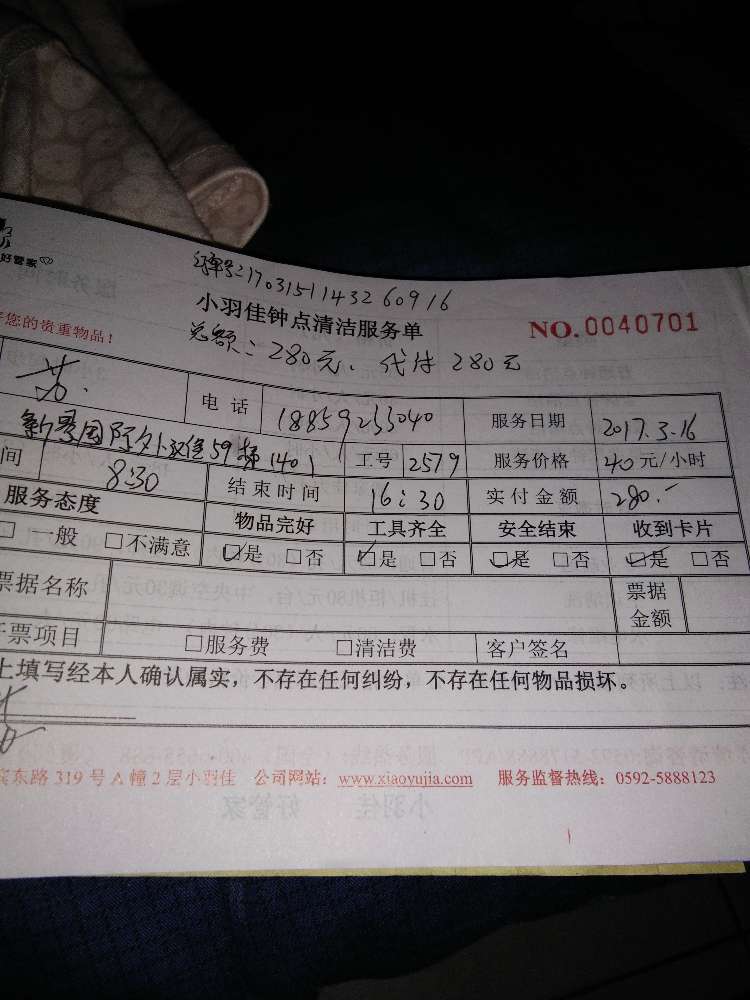 好管家
订单号:17031511432 60916
小羽佳钟点清洁服务单
NO.0040701
您的贵重物品!
总额:280元. 代付280元
苏. 电话 18859233040 服务日期 2017.3.16
新景国际外滩59栋1401 工号 2579 服务价格 40元/小时
间 8:30 结束时间 16:30 实付金额 280.-
服务态度 物品完好 工具齐全 安全结束 收到卡片
□一般 □不满意 ☑是 □否 ☑是 □否 ☑是 □否 ☑是 □否
票据名称 票据金额
票项目 □服务费 □清洁费 客户签名
上填写经本人确认属实,不存在任何纠纷,不存在任何物品损坏。
宾东路319号A幢2层小羽佳 公司网站:www.xiaoyujia.com 服务监督热线:0592-5888123